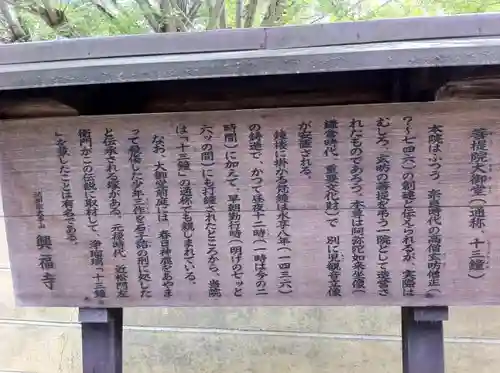 菩提院大御堂(通称、十三鐘)
本院はふつう、奈良時代の高僧玄昉僧正(
?〜七四六)の創建と伝えられるが、実際は
むしろ、玄昉の菩提を弔う一院として造営さ
れたものであろう。本尊は阿弥陀如来坐像(
鎌倉時代、重要文化財)で、別に児観音立像
が安置される。
鐘楼に掛かる梵鐘は永享八年(一四三六)
の鋳造で、かつて昼夜十二時(一時は今の二
時間)に加えて、早朝勤行時(明けの七ッと
六ッの間)にも打鐘されたところから、当院
は「十三鐘」の通称でも親しまれている。
なお、大御堂前庭には、春日神鹿をあやま
って殺傷した少年三作を石子詰の刑に処した
と伝承される塚がある。元禄時代、近松門左
衛門がこの伝説に取材して、浄瑠璃「十三鐘
」を草したことは有名である。
興福寺